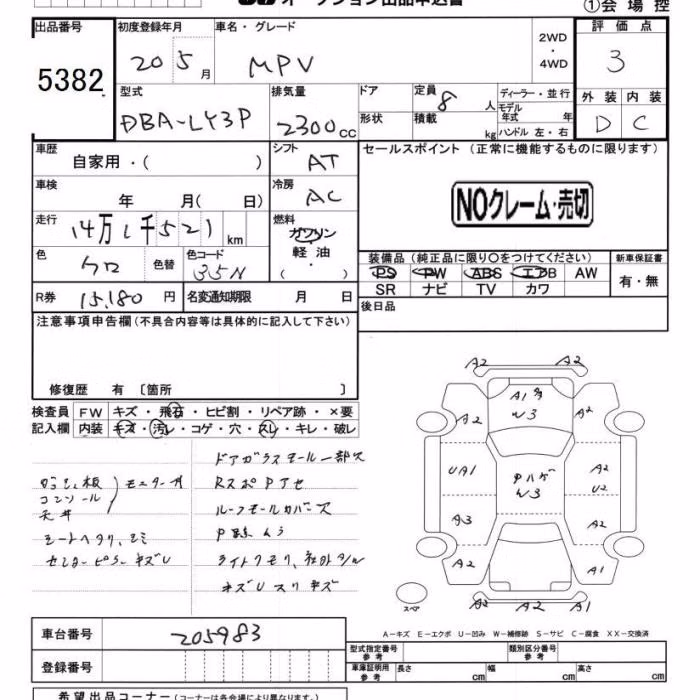 オークション出品申込書 ①会場控
出品番号 初度登録年月 車名・グレード 2WD・4WD 評価点
5382 20 5月 MPV 3
外装 内装
D C
型式 排気量 ドア 定員 ディーラー・並行
DBA-LY3P 2300cc 8人 モデル年式 年
形状 積載 kg ハンドル 左・右
車歴 シフト セールスポイント (正常に機能するものに限ります)
自家用・( ) AT
車検 冷房
年 月( 日) AC
NOクレーム・売切
走行 燃料
14万1千521km ガソリン
軽油
・( )
色 色替 色コード
クロ 35N
装備品 (純正品に限り〇をつけてください) 新車保証書
PS PW ABS エアB AW 有・無
SR ナビ TV カワ
R券 15,180円 名変通知期限 月 日
後日品
注意事項申告欄 (不具合内容等は具体的に記入して下さい)
修復歴 有 〔箇所 〕
検査員 FW キズ・飛石・ヒビ割・リペア跡・×要
記入欄 内装 キズ・汚レ・コゲ・穴・スレ・キレ・破レ
ドアガラスモール一部欠
コンソール
天井
モニター穴
RスポPアセ
ルーフモールカバー欠
シートヘタリ、シミ
センターピラーキズU
ライトクモリ、社外タン
キズUスリキズ
A2 A2
A1 W3
A2 A2
UA1 PハゲW3 A2
U2
A3 A2
A2 A1
スペア A2 A2 A1
A-キズ E-エクボ U-凹み W-補修跡 S-サビ C-腐食 XX-交換済
車台番号 205983
型式指定番号 参考 類別区分番号 参考
登録番号
車庫証明用 参考 長さ cm 幅 cm 高さ cm
希望出品コーナー (コーナーは各会場により異なります。)